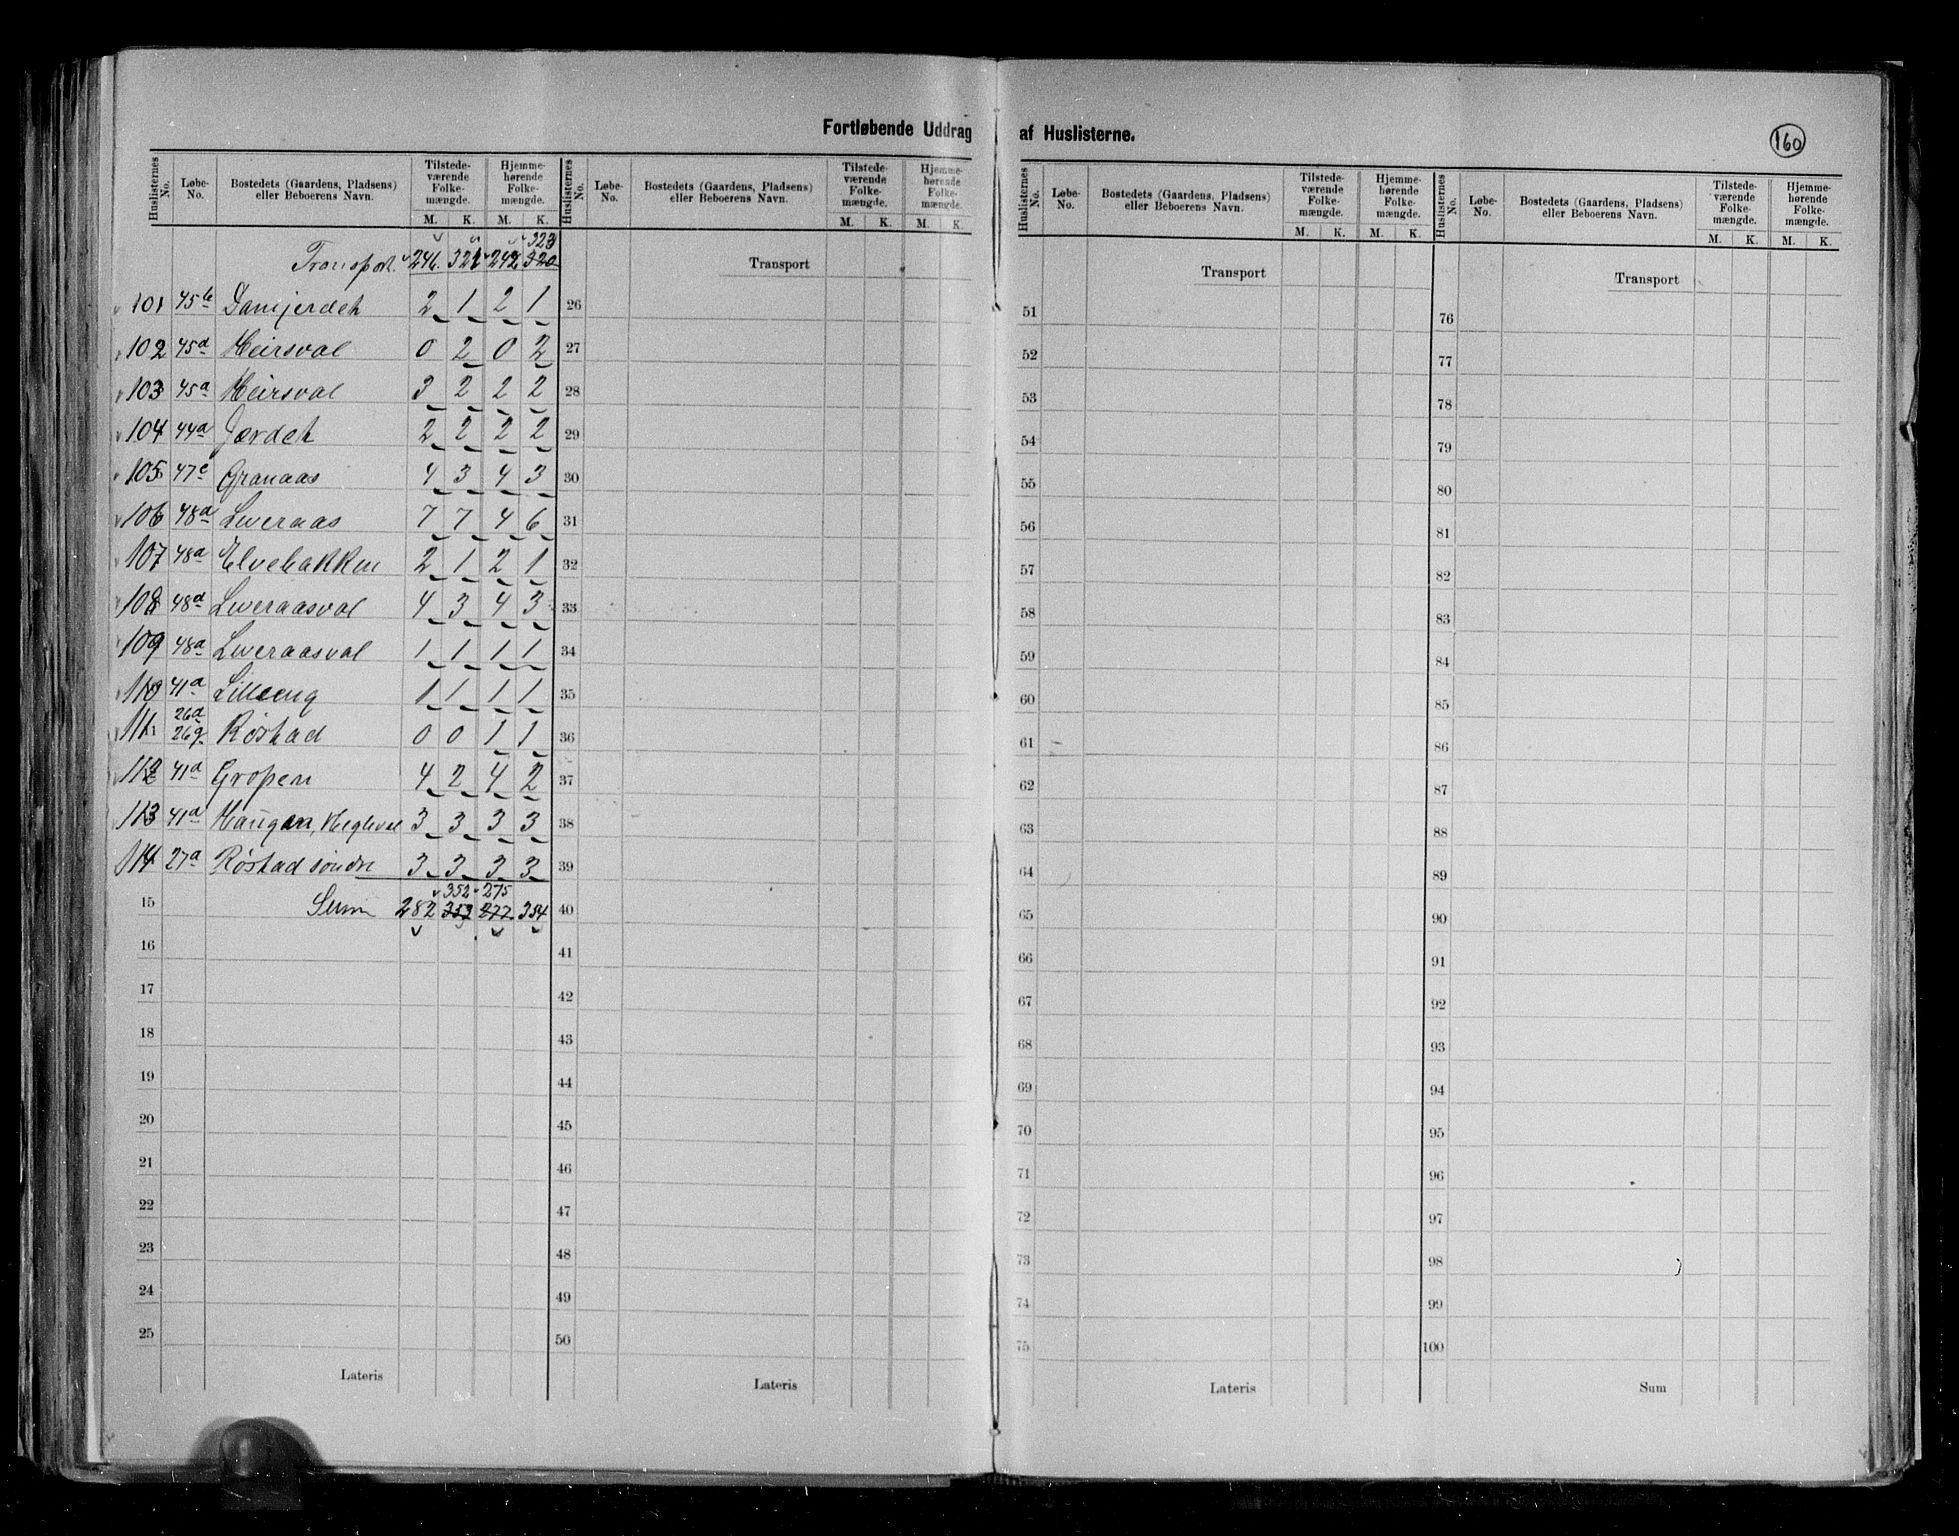 Fortløbende Uddrag af Huslisterne.
160
Huslisternes No. Løbe-No. Bostedets (Gaardens, Pladsens) eller Beboerens Navn. Tilstede-værende Folke-mængde. M. K. Hjemme-hørende Folke-mængde. M. K.
323
Transport. 246. 321 242 320
101 45b 2 1 2 1
102 45d Heirsval 0 2 0 2
103 45a Heirsval 3 2 2 2
104 44a Jordet 2 2 2 2
105 47c Granaas 4 3 4 3
106 48a Leveraas 7 7 4 6
107 48a Elvebakken 2 1 2 1
108 48d Leveraasval 4 3 4 3
109 48a Leveraasval 1 1 1 1
110 41a Lilleeng 1 1 1 1
26d
111 26g Røstad 0 0 1 1
112 41a Gropen 4 2 4 2
113 41a Haugen, 3 3 3 3
114 27a Røstad søndre 3 3 3 3
352 275
15 Sum 282 353 277 354
16
17
18
19
20
21
22
23
24
25
Lateris
Huslisternes No. Løbe-No. Bostedets (Gaardens, Pladsens) eller Beboerens Navn. Tilstede-værende Folke-mængde. M. K. Hjemme-hørende Folke-mængde. M. K.
Transport
26
27
28
29
30
31
32
33
34
35
36
37
38
39
40
41
42
43
44
45
46
47
48
49
50
Lateris
Huslisternes No. Løbe-No. Bostedets (Gaardens, Pladsens) eller Beboerens Navn. Tilstede-værende Folke-mængde. M. K. Hjemme-hørende Folke-mængde. M. K.
Transport
51
52
53
54
55
56
57
58
59
60
61
62
63
64
65
66
67
68
69
70
71
72
73
74
75
Lateris
Huslisternes No. Løbe-No. Bostedets (Gaardens, Pladsens) eller Beboerens Navn. Tilstede-værende Folke-mængde. M. K. Hjemme-hørende Folke-mængde. M. K.
Transport
76
77
78
79
80
81
82
83
84
85
86
87
88
89
90
91
92
93
94
95
96
97
98
99
100
Sum